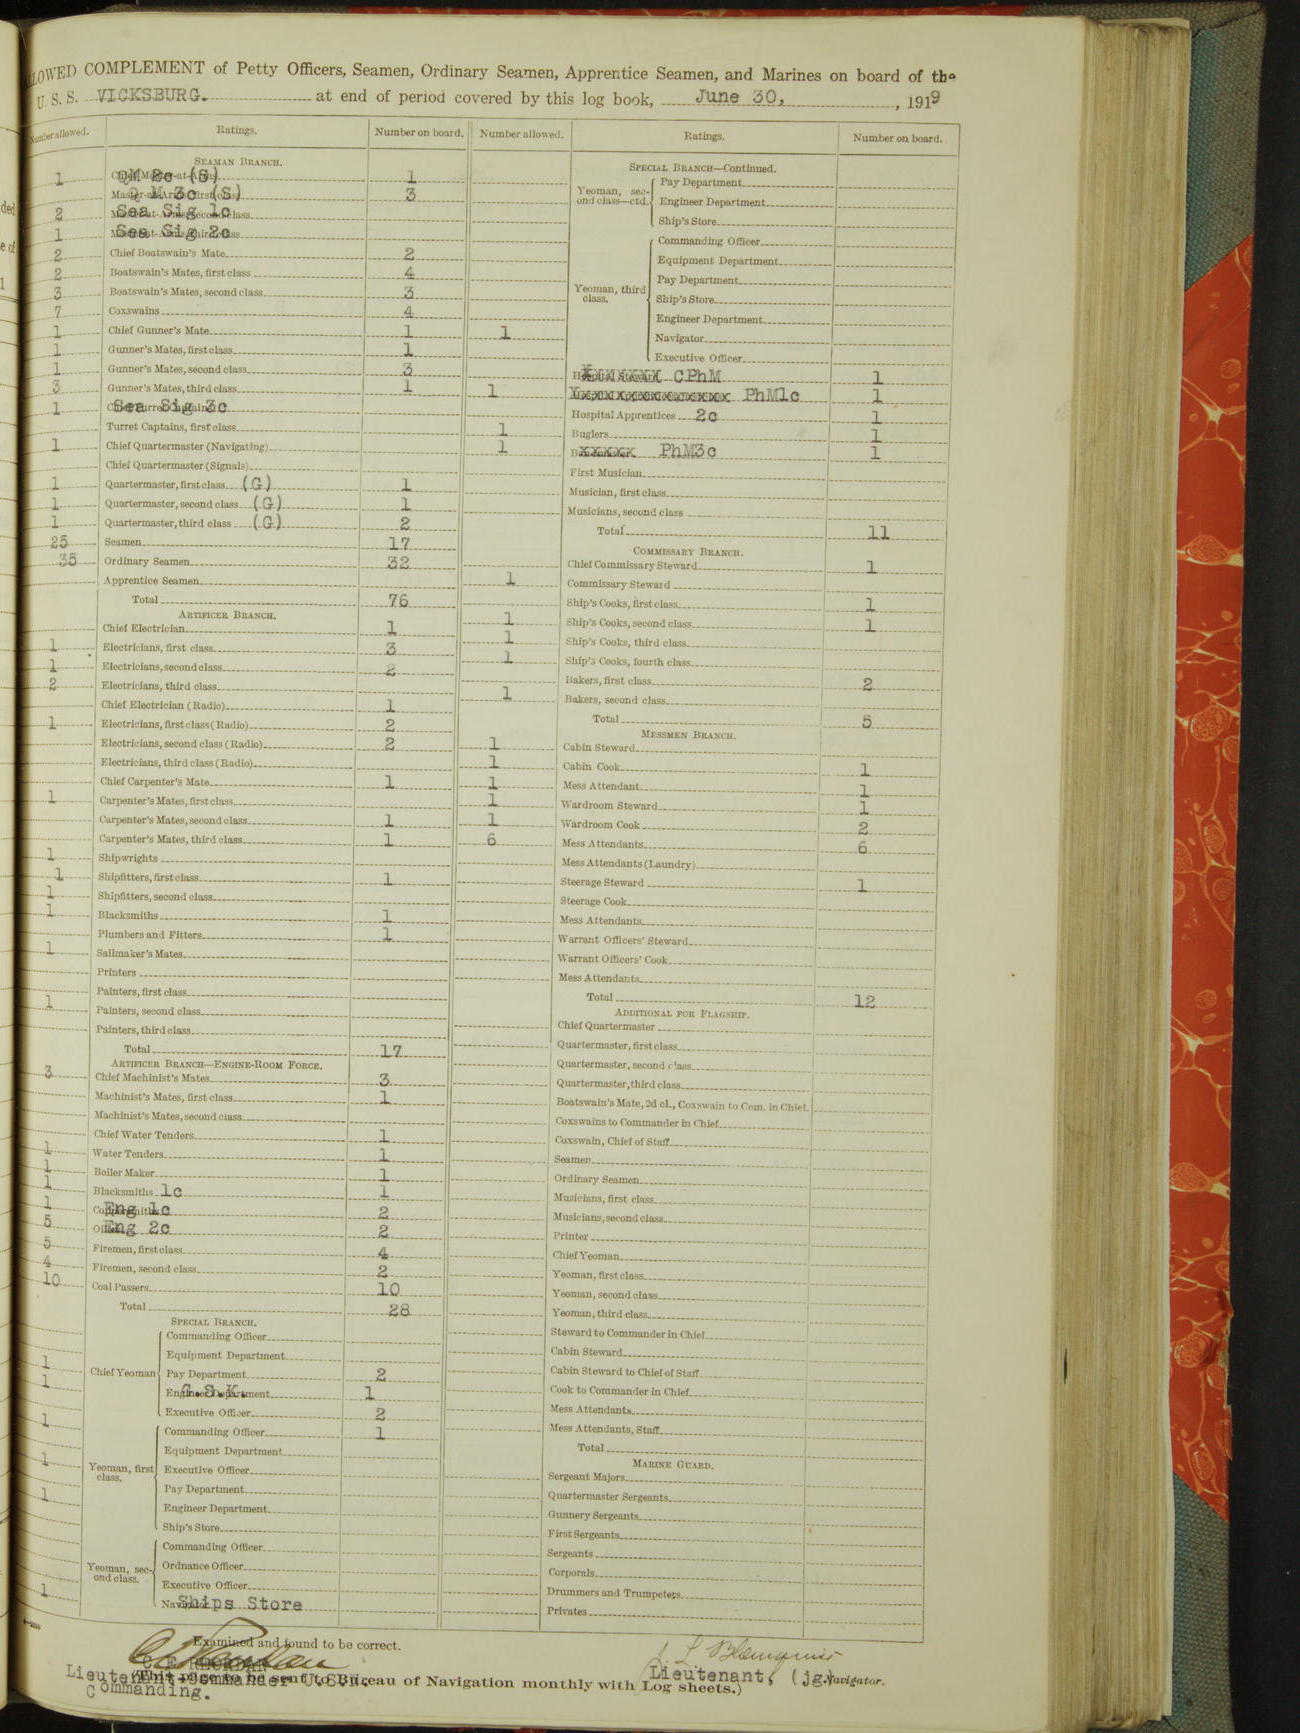 ALLOWED COMPLEMENT of Petty Officers, Seamen, Ordinary Seamen, Apprentice Seamen, and Marines on board of the
U. S. S. VICKSBURG. at end of period covered by this log book, June 30, 1919
Number allowed. Ratings. Number on board. Number allowed. Ratings. Number on board.
SEAMAN BRANCH.
1 QM 2c (S) 1
Q M 3c (S) 3
2 Sea Sig 1c
1 Sea Sig 2c
2 Chief Boatswain's Mate 2
2 Boatswain's Mates, first class 4
3 Boatswain's Mates, second class 3
7 Coxswains 4
1 Chief Gunner's Mate 1
1 Gunner's Mates, first class 1
1 Gunner's Mates, second class 3
3 Gunner's Mates, third class 1
1 Sea Sig 3c
Turret Captains, first class
1 Chief Quartermaster (Navigating)
Chief Quartermaster (Signals)
1 Quartermaster, first class (G) 1
1 Quartermaster, second class (G) 1
1 Quartermaster, third class (G) 2
25 Seamen 17
35 Ordinary Seamen 32
Apprentice Seamen
Total 76
ARTIFICER BRANCH.
Chief Electrician 1
1 Electricians, first class 3
1 Electricians, second class 2
2 Electricians, third class
Chief Electrician (Radio) 1
1 Electricians, first class (Radio) 2
Electricians, second class (Radio) 2
Electricians, third class (Radio)
Chief Carpenter's Mate 1
1 Carpenter's Mates, first class
Carpenter's Mates, second class 1
Carpenter's Mates, third class 1
1 Shipwrights
1 Shipfitters, first class 1
1 Shipfitters, second class
1 Blacksmiths 1
Plumbers and Fitters 1
1 Sailmaker's Mates
Printers
Painters, first class
1 Painters, second class
Painters, third class
Total 17
ARTIFICER BRANCH—ENGINE-ROOM FORCE.
3 Chief Machinist's Mates 3
Machinist's Mates, first class 1
Machinist's Mates, second class
Chief Water Tenders 1
1 Water Tenders 1
1 Boiler Maker 1
1 Blacksmiths 1c 1
1 Eng 1c 2
5 Eng 2c 2
5 Firemen, first class 4
4 Firemen, second class 2
10 Coal Passers 10
Total 28
SPECIAL BRANCH.
Chief Yeoman
Commanding Officer
Equipment Department
1 Pay Department 2
1 C.S.K. 1
Executive Officer 2
1 Commanding Officer 1
Equipment Department
Yeoman, first class.
1 Executive Officer
Pay Department
1 Engineer Department
Ship's Store
Commanding Officer
Yeoman, second class.
Ordnance Officer
Executive Officer
1 Ships Store
SPECIAL BRANCH—Continued.
Yeoman, second class—ctd.
Pay Department
Engineer Department
Ship's Store
Yeoman, third class.
Commanding Officer
Equipment Department
Pay Department
Ship's Store
1 Engineer Department
Navigator
Executive Officer
CPhM 1
1 PhM1c 1
Hospital Apprentices 2c 1
1 Buglers 1
1 PhM3c 1
First Musician
Musician, first class
Musicians, second class
Total 11
COMMISSARY BRANCH.
1 Chief Commissary Steward 1
Commissary Steward
1 Ship's Cooks, first class 1
1 Ship's Cooks, second class 1
1 Ship's Cooks, third class
Ship's Cooks, fourth class
1 Bakers, first class 2
Bakers, second class
Total 5
MESSMEN BRANCH.
1 Cabin Steward
1 Cabin Cook 1
1 Mess Attendant 1
1 Wardroom Steward 1
1 Wardroom Cook 2
6 Mess Attendants 6
Mess Attendants (Laundry)
Steerage Steward 1
Steerage Cook
Mess Attendants
Warrant Officers' Steward
Warrant Officers' Cook
Mess Attendants
Total 12
ADDITIONAL FOR FLAGSHIP.
Chief Quartermaster
Quartermaster, first class
Quartermaster, second class
Quartermaster, third class
Boatswain's Mate, 2d cl., Coxswain to Com. in Chief.
Coxswains to Commander in Chief
Coxswain, Chief of Staff
Seamen
Ordinary Seamen
Musicians, first class
Musicians, second class
Printer
Chief Yeoman
Yeoman, first class
Yeoman, second class
Yeoman, third class
Steward to Commander in Chief
Cabin Steward
Cabin Steward to Chief of Staff
Cook to Commander in Chief
Mess Attendants
Mess Attendants, Staff
Total
MARINE GUARD.
Sergeant Majors
Quartermaster Sergeants
Gunnery Sergeants
First Sergeants
Sergeants
Corporals
Drummers and Trumpeters
Privates
Examined and found to be correct.
Lieutenant-Commander U.S.N. Lieutenant, (jg) Navigator.
(This page to be sent to Bureau of Navigation monthly with Log sheets.)
Commanding.